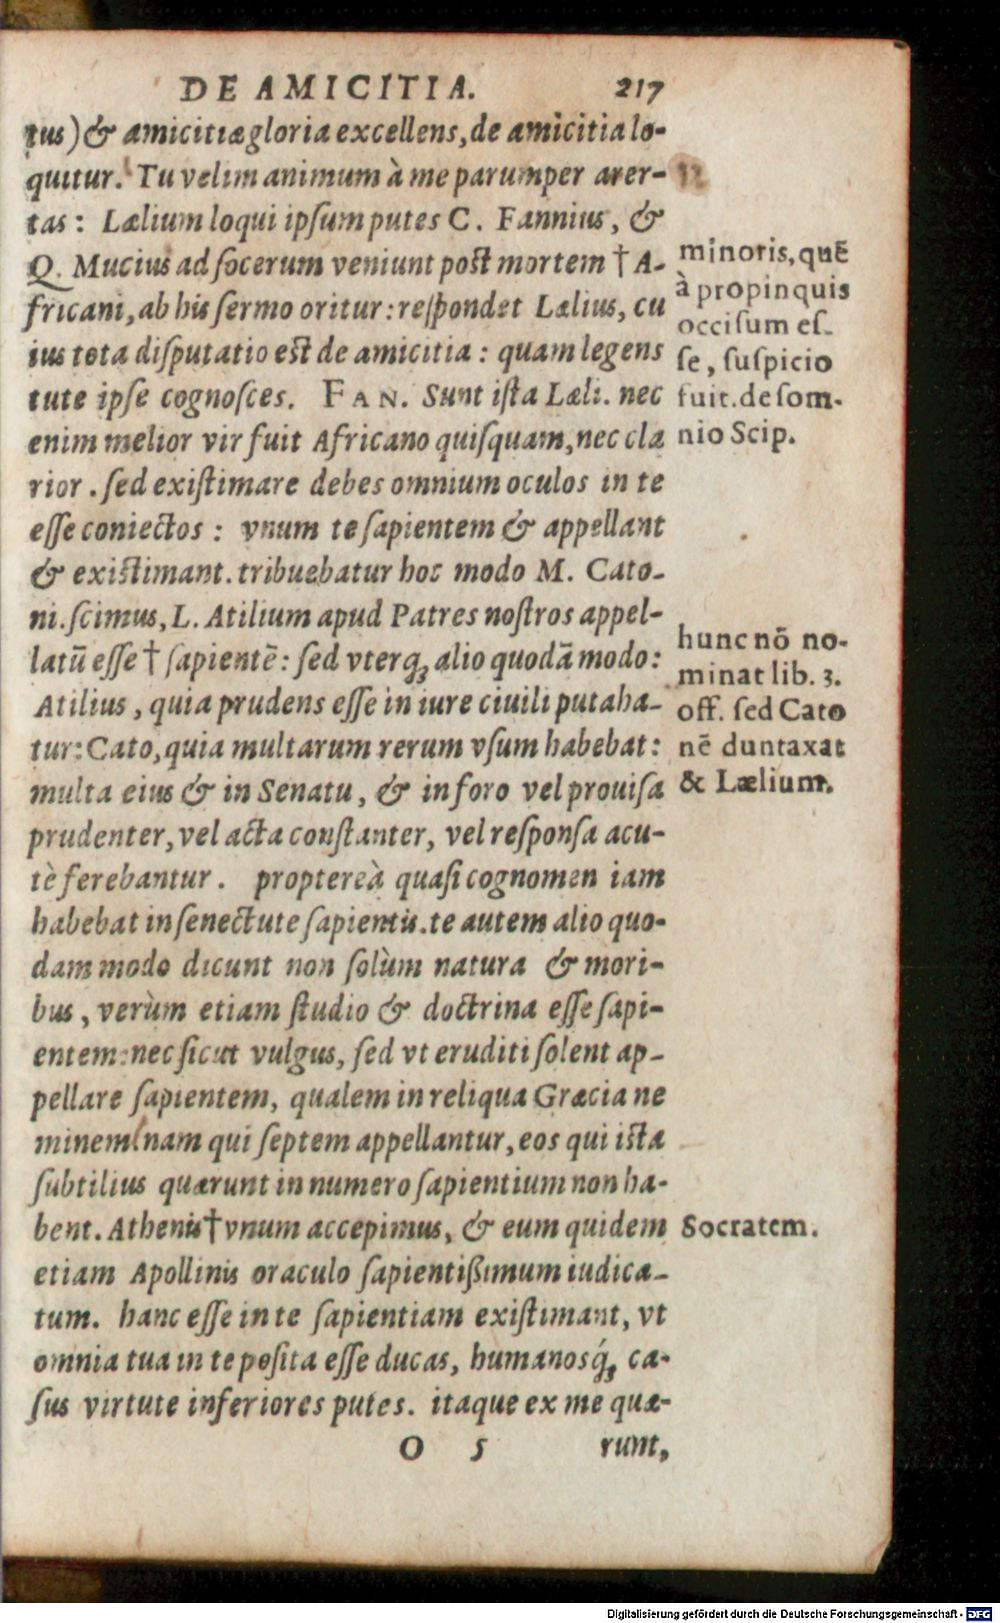 DE AMICITIA. 217
tus) & amicitiæ gloria excellens, de amicitia lo-
quitur. Tu velim animum à me parumper aver-
tas: Lælium loqui ipſum putes C. Fannius, &
Q. Mucius ad ſocerum veniunt poſt mortem † A-
fricani, ab his ſermo oritur: reſpondet Lælius, cu
ius tota diſputatio eſt de amicitia: quam legens
tute ipſe cognoſces. FAN. Sunt iſta Læli. nec
enim melior vir fuit Africano quiſquam, nec cla
rior. ſed exiſtimare debes omnium oculos in te
eſſe coniectos: vnum te ſapientem & appellant
& exiſtimant. tribuebatur hoc modo M. Cato-
ni. ſcimus, L. Atilium apud Patres noſtros appel-
latũ eſſe † ſapientẽ: ſed vterq; alio quodã modo:
Atilius, quia prudens eſſe in iure ciuili putaba-
tur: Cato, quia multarum rerum vſum habebat:
multa eius & in Senatu, & in foro vel prouiſa
prudenter, vel acta conſtanter, vel reſponſa acu-
tè ferebantur. propterea̕ quaſi cognomen iam
habebat in ſenectute ſapientis. te autem alio quo-
dam modo dicunt non ſolùm natura & mori-
bus, verùm etiam ſtudio & doctrina eſſe ſapi-
entem: nec ſicut vulgus, ſed vt eruditi ſolent ap-
pellare ſapientem, qualem in reliqua Græcia ne
minem (nam qui ſeptem appellantur, eos qui iſta
ſubtilius quærunt in numero ſapientium non ha-
bent. Athenis † vnum accepimus, & eum quidem
etiam Apollinis oraculo ſapientißimum iudica-
tum. hanc eſſe in te ſapientiam exiſtimant, vt
omnia tua in te poſita eſſe ducas, humanosq́; ca-
ſus virtute inferiores putes. itaque ex me quæ-
O 5 runt,
minoris, quẽ
à propinquis
occiſum eſ-
ſe, ſuſpicio
fuit. de ſom-
nio Scip.
hunc nõ no-
minat lib. 3.
off. ſed Cato
nẽ duntaxat
& Lælium.
Socratem.
Digitalisierung gefördert durch die Deutsche Forschungsgemeinschaft - DFG